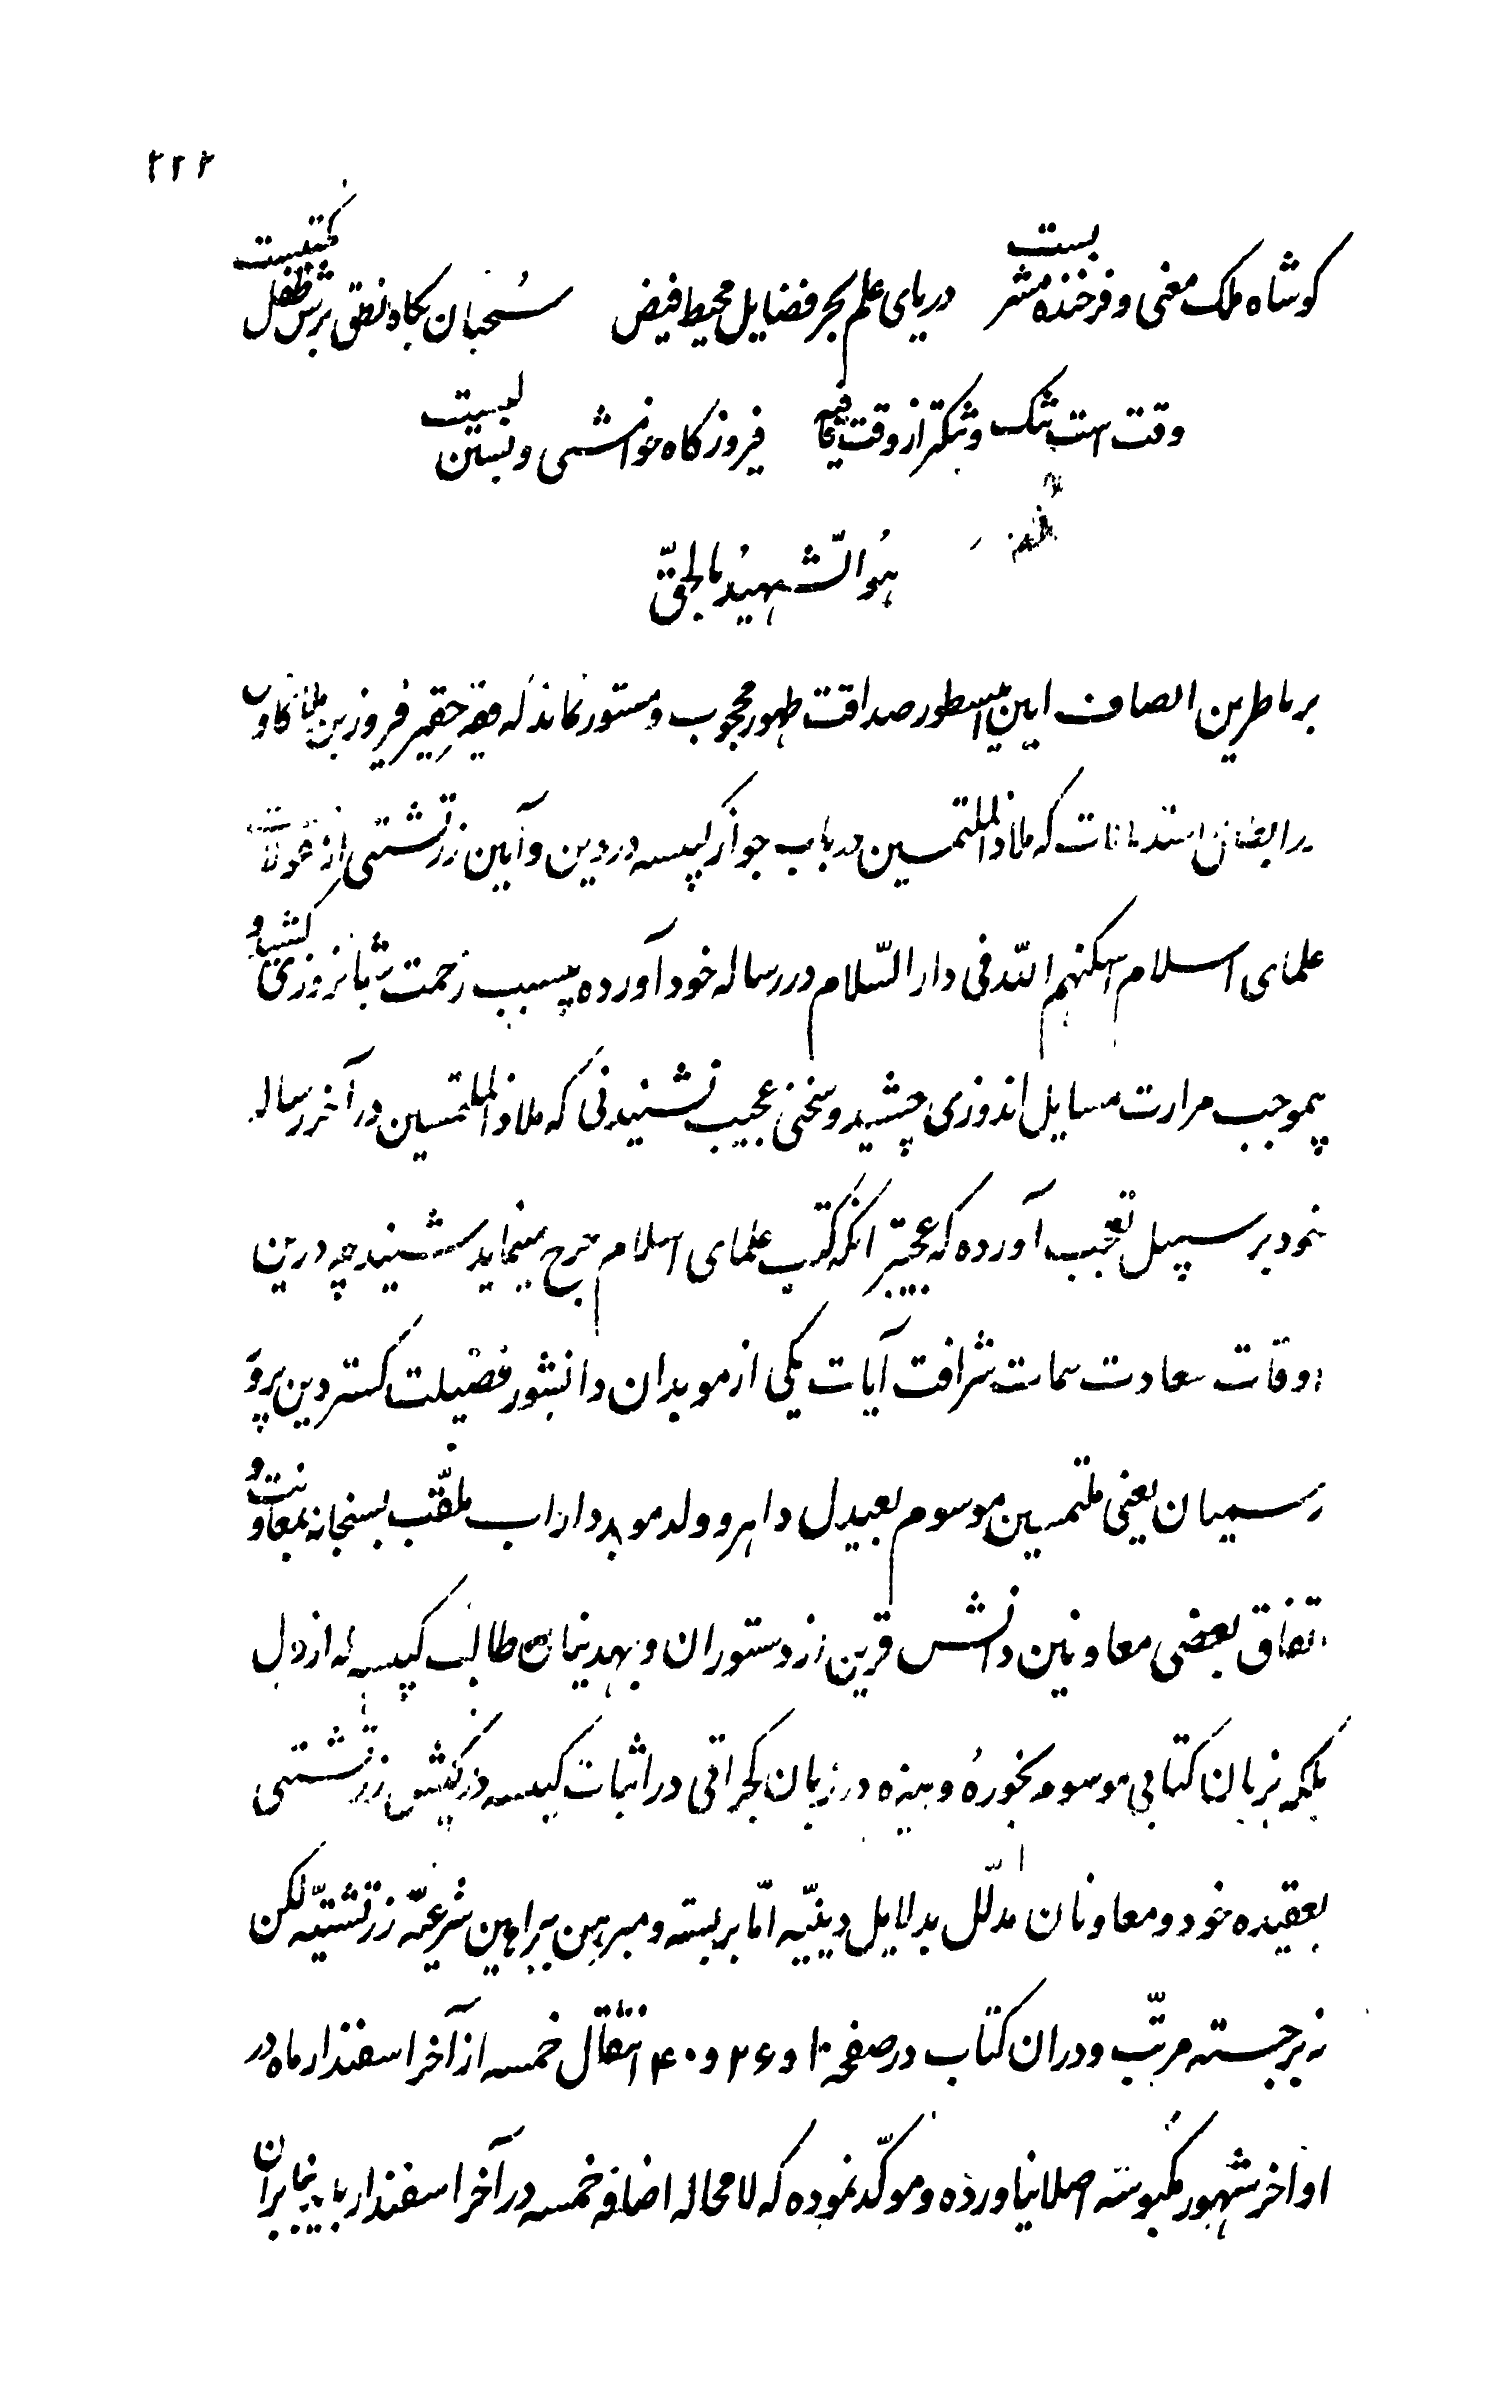 ۲۲۲
کوشاه ملک معنی و فرخنده مشربست دریای علم بحر فضایل محیط فیض سُحبان بگاه نطق برش طفل مکتبست
وقت است تنک و تنکتر از وقت قافیه فیروز گاه خوامشی و بستن لبست
هُوالشّهیدُ بالحقّ
بر ناظرین انصاف آیین این سطور صداقت ظهور محجوب و مستور نماند که فقیر حقیر فیروز بن ملّا کاوس
را بعضی که ملاذالملتمسین در باب جواز کبیسه در دین و آیین زرتشتی از
علمای اسلام اسکنهم اللّه فی دار السّلام در رساله خود آورده بسبب زحمت شبانروزی کشید و
بموجب مرارت مسایل اندوزی چشید و سخنی عجیب نشنیدنی که ملاذالملتمسین در آخر رساله
خود بر سبیل تعجب آورده که عجبتر آنکه کتب علمای اسلام جرح مینماید شنید چه درین
اوقات سعادت سمات شرافت آیات یکی از موبدان دانشور فضیلت گستر دین پرور
رسمیان یعنی ملتمسین موسوم بعیدل داهرو ولد موبد داراب ملقّب بسنجانه بمعاونت و
اتفاق بعضی معاونین دانش قرین از دستوران و بهدینان طالب کبیسه نه از دل
بلکه بزبان کتابی موسوم بخورهٔ وهیزه در زبان گجراتی در اثبات کبیسه در کیش زرتشتی
بعقیده خود و معاونان مدلّل بدلایل دینیّه امّا بربسته و مبرهن ببراهین شرعیّه زرتشتیّه لکن
نه برجسته مرتّب و دران کتاب در صفحه ۱۰ و ۲۶ و ۴۰ انتقال خمسه از آخر اسفندار ماه در
اواخر شهور مکبوسه اصلا نیاورده و موکّد نموده که لامحاله اضافه خمسه در آخر اسفندار باید بنابران